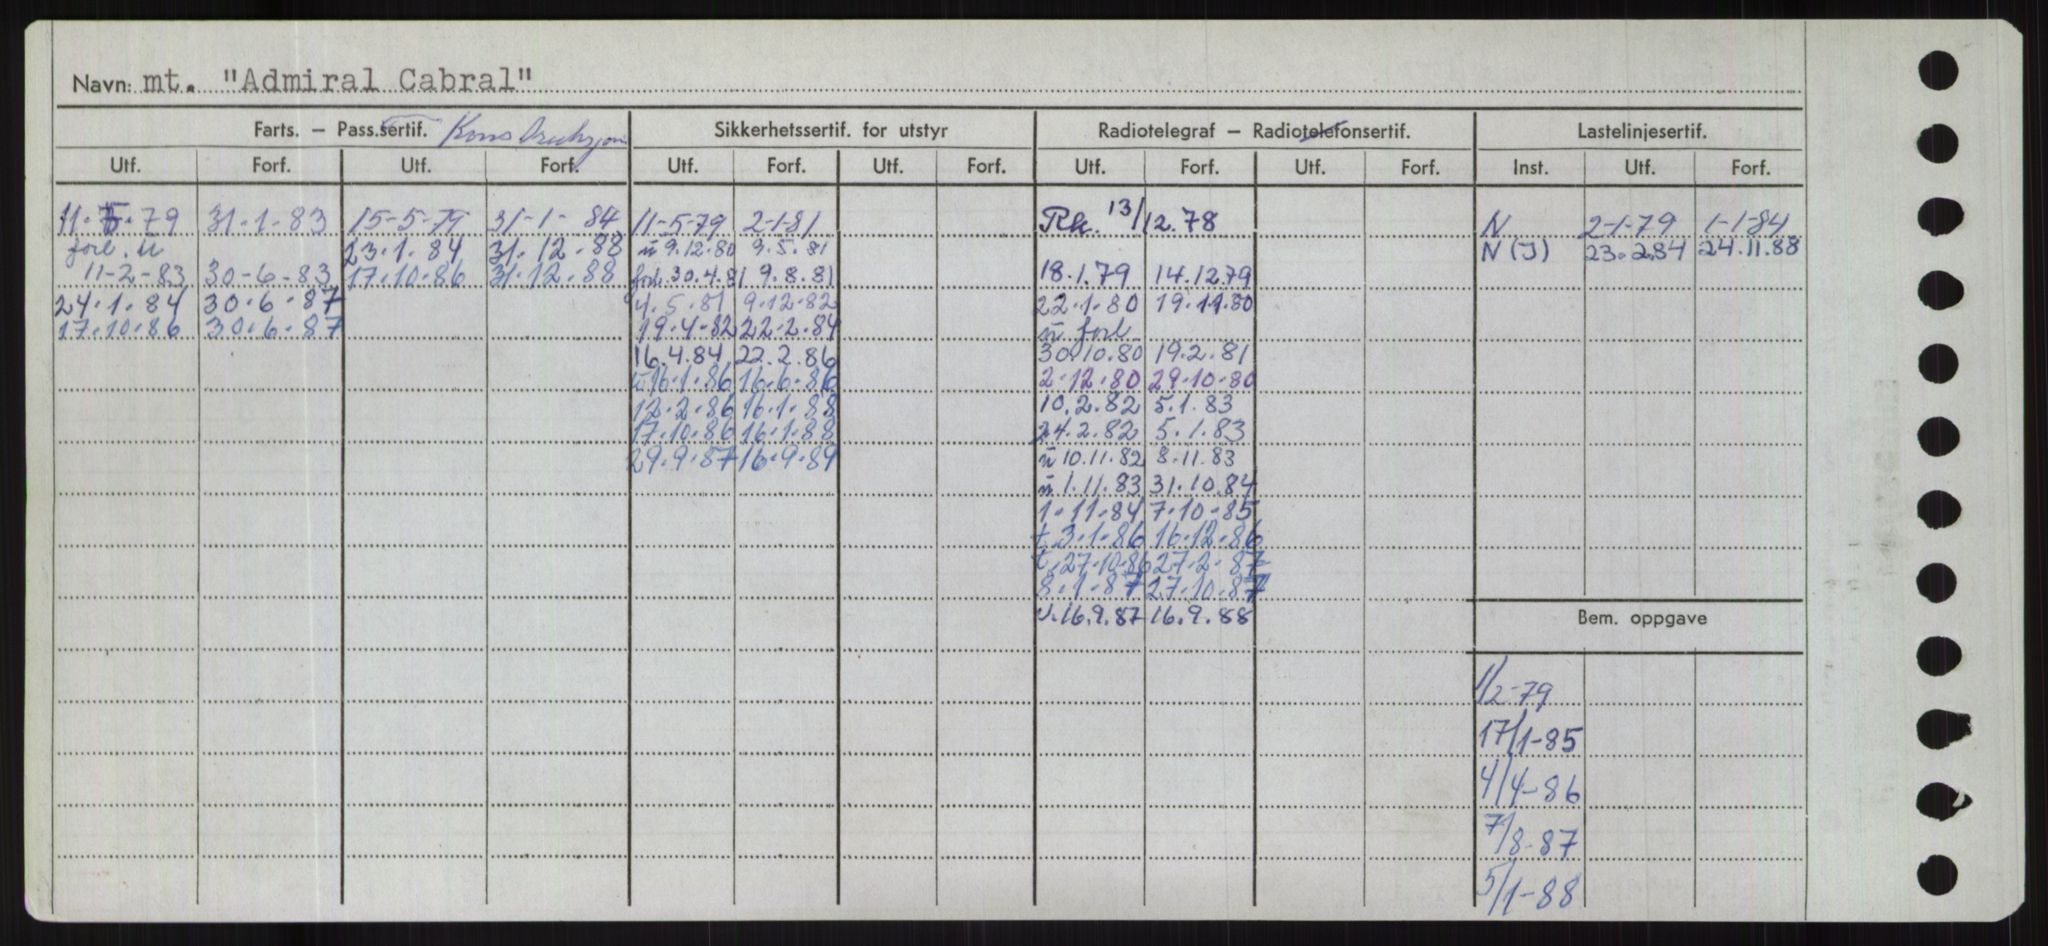 Navn: mt. "Admiral Cabral"
Farts. – Pass.sertif. Konstruksjon Sikkerhetssertif. for utstyr Radiotelegraf – Radiotelefonsertif. Lastelinjesertif.
Utf. Forf. Utf. Forf. Utf. Forf. Utf. Forf. Utf. Forf. Utf. Forf. Inst. Utf. Forf.
11.5.79 31.1.83 15-5-79 31-1-84 11-5-79 2-1-81 Rk. 13/12.78 N 2-1-79 1-1-84
forl. u 23.1.84 31.12.88 u 9.12.80 9.5.81 N (J) 23.2.84 24.11.88
11-2-83 30-6-83 17.10.86 31.12.88 forl. 30.4.81 9.8.81 18.1.79 14.12.79
24.1.84 30.6.87 4.5.81 9.12.82 22.1.80 19.11.80
17.10.86 30.6.87 19.4.82 22.2.84 u forl
16.4.84 22.2.86 30.10.80 19.2.81
u 16.1.86 16.6.86 2.12.80 29.10.80
12.2.86 16.1.88 10.2.82 5.1.83
17.10.86 16.1.88 24.2.82 5.1.83
29.9.87 16.9.89 u 10.11.82 8.11.83
u 1.11.83 31.10.84
1.11.84 7.10.85
t. 3.1.86 16.12.86
t. 27.10.86 27.2.87
8.1.87 27.10.87
u. 16.9.87 16.9.88
Bem. oppgave
1/2-79
17/1-85
4/4-86
7/8-87
5/1-88